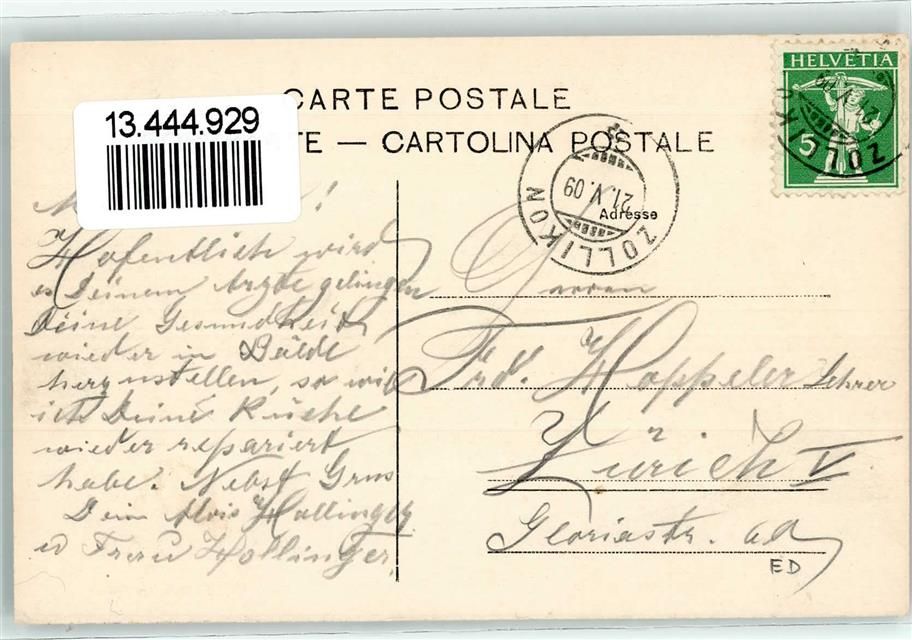 CARTE POSTALE
TE — CARTOLINA POSTALE
13.444.929
HELVETIA
5
ZOLLIKON
ZOLLIKON
21.V.09
Adresse
M !
Hofentlich wird
es Deinem Arzte gelingen
Deine Gesundheit
wieder in Bälde
herzustellen, so wie
ich Deine Küche
wieder repariert
habe. Nebst Grus
Dein Alois Hollinger
u Frau Hollinger.
Herren
Frd. Hoppeler Lehrer
Zürich V
Gloriastr.
ED